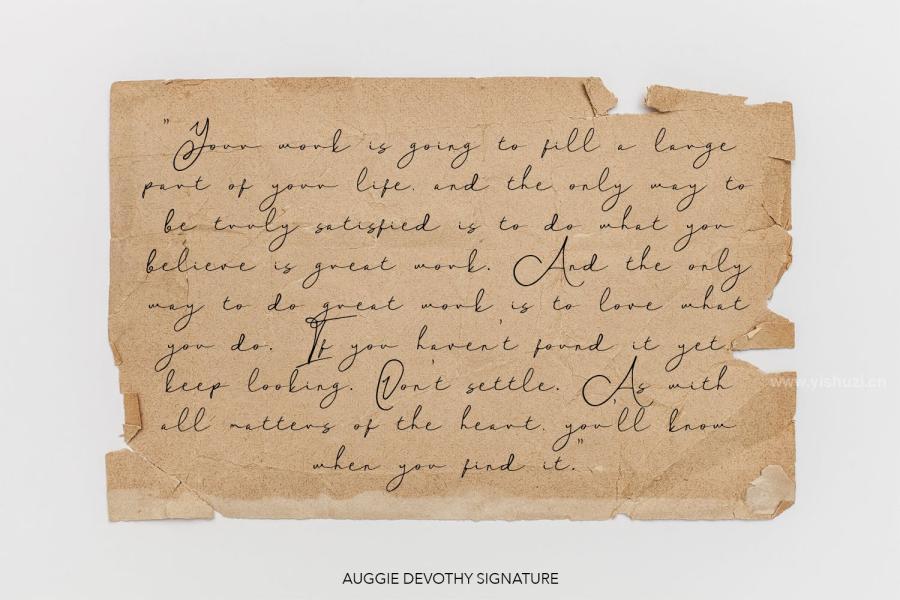 "Your work is going to fill a large
part of your life, and the only way to
be truly satisfied is to do what you
believe is great work. And the only
way to do great work is to love what
you do. If you haven't found it yet,
keep looking. Don't settle. As with
all matters of the heart, you'll know
when you find it."
www.yishuzi.cn
AUGGIE DEVOTHY SIGNATURE